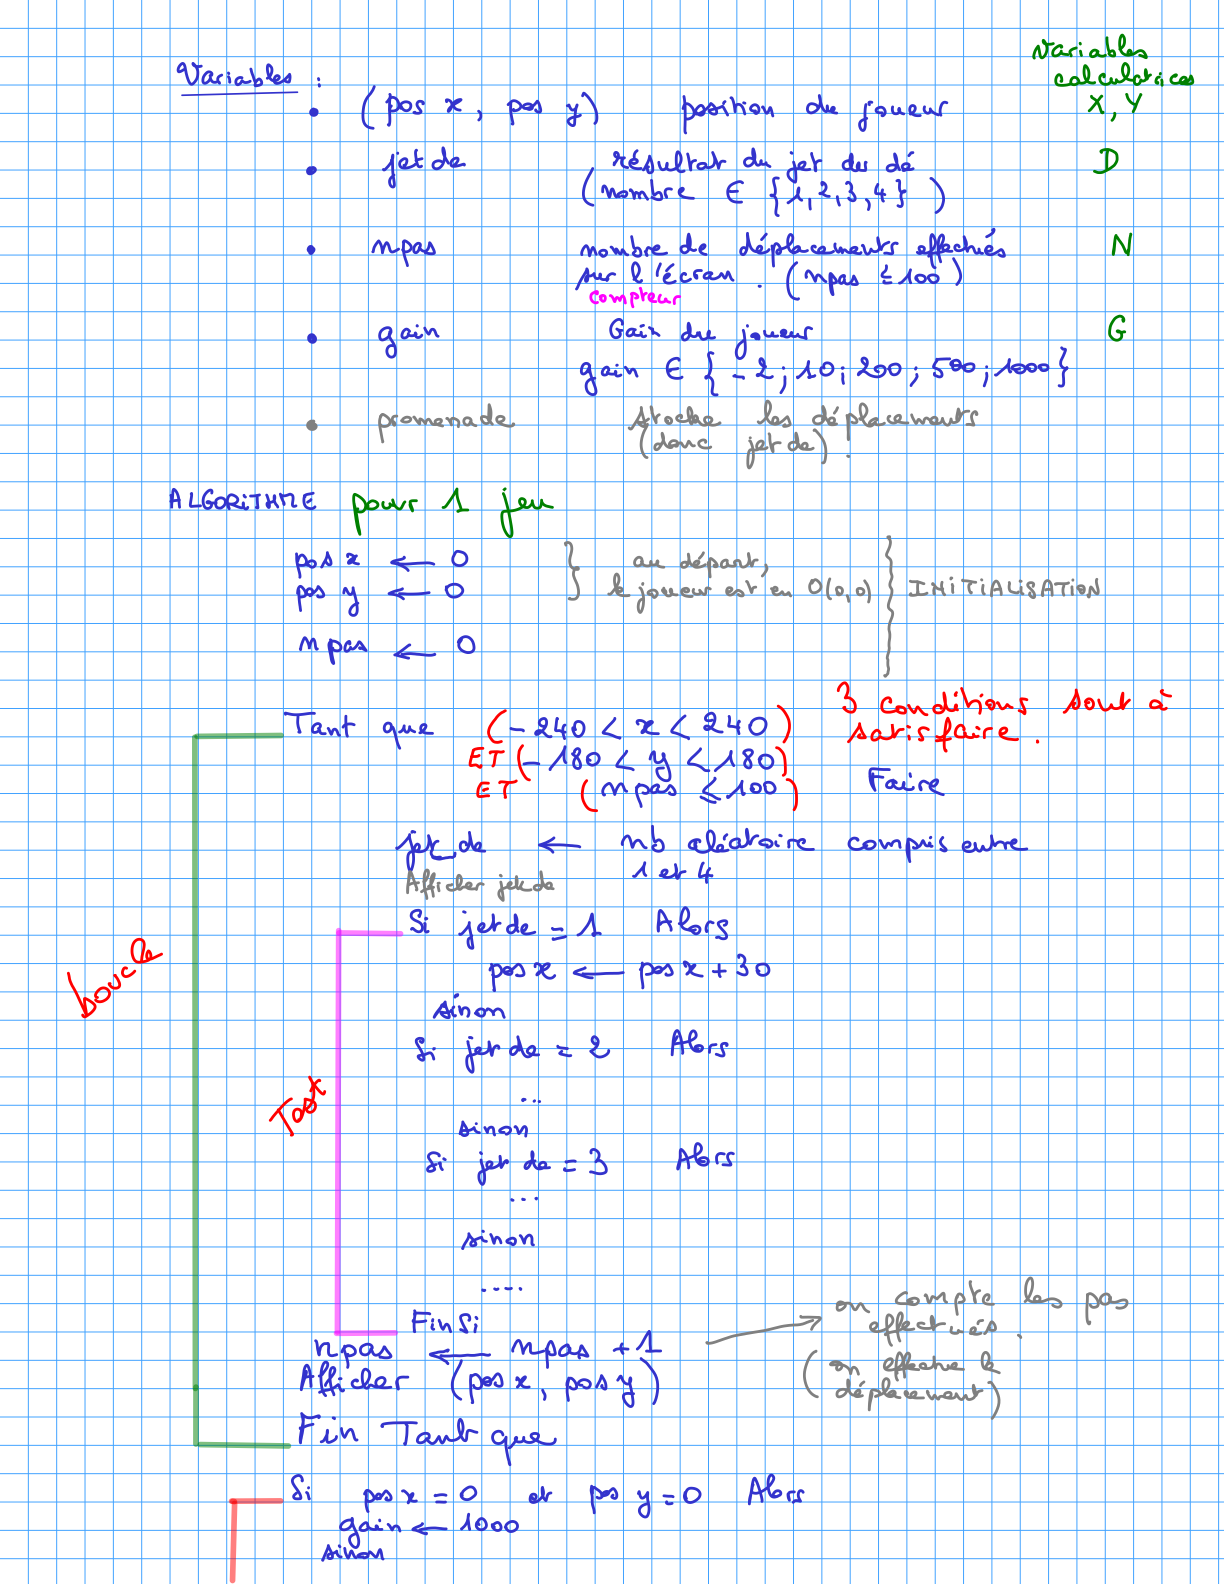 Variables :
Variables
calculatrices
• (pos x, pos y) position du joueur X, Y
• jet de résultat du jet du dé D
(nombre ∈ {1, 2, 3, 4})
• npas nombre de déplacements effectués N
sur l'écran. (npas ≤ 100)
compteur
• gain Gain du joueur G
gain ∈ {-2; 10; 200; 500; 1000}
• promenade stocke les déplacements
(donc jet de).
ALGORITHME pour 1 jeu
pos x ← 0 } au départ,
pos y ← 0 le joueur est en O(0,0) INITIALISATION
n pas ← 0
Tant que (-240 < x < 240) 3 conditions sont à
satisfaire.
ET (-180 < y < 180)
ET (n pas ≤ 100) Faire
jet_de ← nb aléatoire compris entre
1 et 4
Afficher jet de
Si jet de = 1 Alors
pos x ← pos x + 30
sinon
Si jet de = 2 Alors
...
sinon
Si jet de = 3 Alors
...
sinon
....
Fin Si
boucle
Test
npas ← npas + 1
on compte les pas
effectués.
(on effectue le
déplacement)
Afficher (pos x, pos y)
Fin Tant que
Si pos x = 0 et pos y = 0 Alors
gain ← 1000
sinon